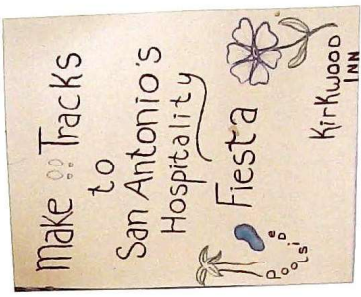 Make Tracks
to
San Antonio's
Hospitality
Fiesta
Poolside
Kirkwood
INN